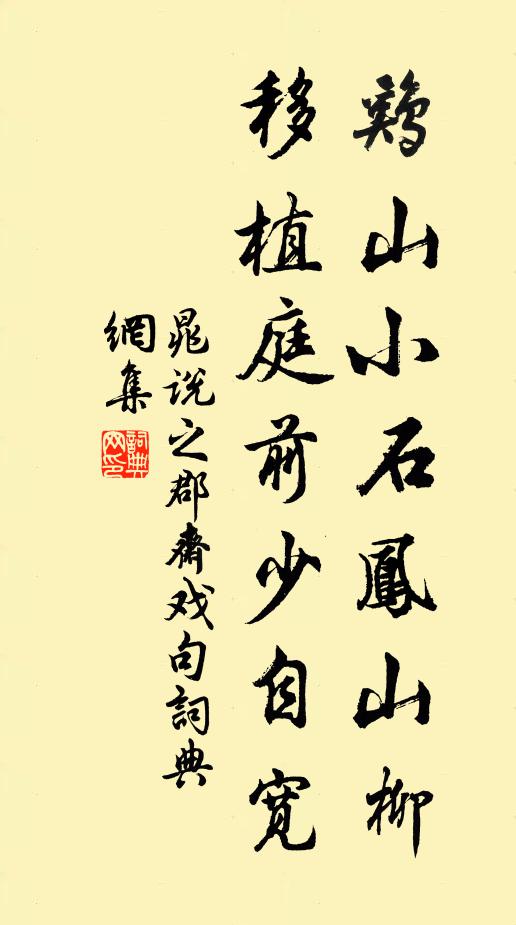 鷄山小石鳳山柳
移植庭前少自寬
晁說之郡齋戏句詞典
網集
詞典
网印